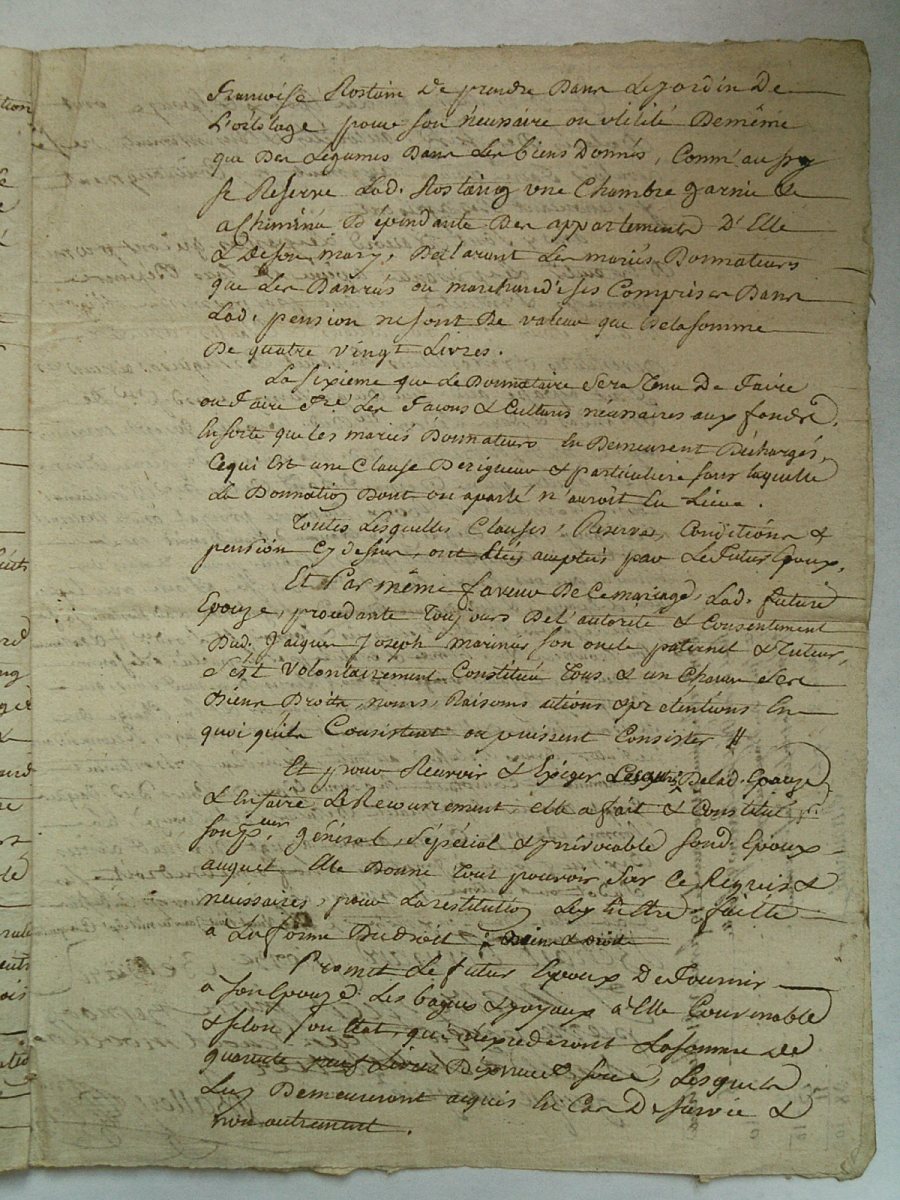 francoise Rostain de prendre dans le jardin de
L'ortolage pour son necessaire ou utilité de même
que des Legumes dans les biens donnés, comm'aussy
se Reserve Lad. Rostaing une Chambre garnie &
a chiminé dépendante des appartements d'Elle
& de son mary, declarant les mariés donnateurs
que les danrées ou marchandises comprises dans
Lad. pension ne sont de valeur que de la somme
de quatre vingt Livres.
La sixieme que le donnataire sera tenu de faire
ou faire fre. les facons & cultures necessaires aux fonds
Ensorte que les mariés donnateurs en demeurent déchargés,
ce qui est une clause de rigueur & particuliere sans laquelle
La donnation dont on a parlé n'auroit eu lieu.
Toutes lesquelles clauses, Reserves, conditions &
pension cy dessus, ont été acceptés par le futur Epoux.
Et par même faveur de ce mariage, Lad. future
Epouze, procedante toujours de l'autorité & consentement
dud. Jacques Joseph son oncle paternel & tuteur,
s'est volontairement constitué tous & un chacun ses
biens droits, noms, raisons actions & prétentions en
quoi qu'ils consistent ou puissent consister //
Et pour recevoir & Exiger de lad. Epouze
& en faire le recouvrement elle a fait & constitué
son pr. général, spécial & irrévocable sond. Epoux
auquel elle donne tout pouvoir sur ce requis &
necessaires, pour la restitution luy être faitte
a la forme du droit
Promet le futur Epoux de fournir
a son Epouze les bagues & joyaux à elle convenable
& selon son Etat, qui la somme de
quarante Lesquels
luy demeureront acquis en cas de survie &
non autrement.